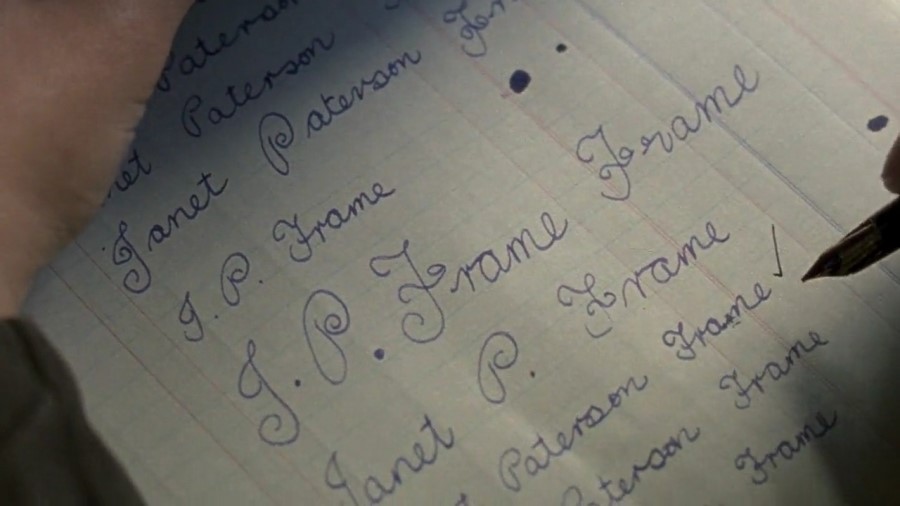 Paterson
net Paterson
Janet Paterson Fr
J. P. Frame
J. P. Frame Frame
Janet P. Frame
t Paterson Frame
Paterson Frame
Frame